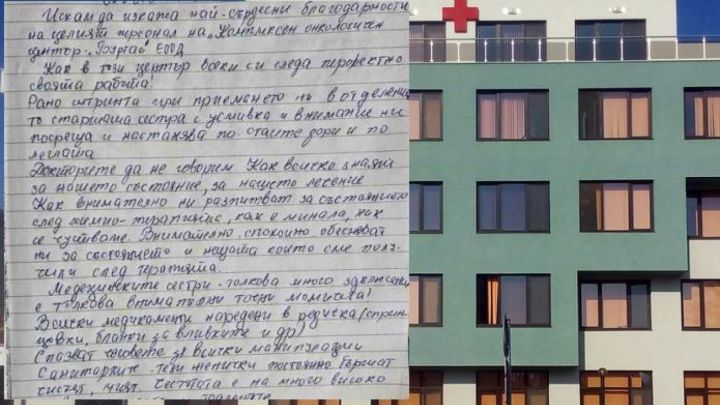 Искам да изкажа най-сърдесни благодарности
на целият персонал на „Комплексен онкологичен
център-Бургас" ЕООД
Как в този център всеки си следа перфектно
своята работа!
Рано сутринта при приемането ни в отделение
то старшата сестра с усмивка и внимание ни
посреща и настанява по стаите дори и по
леглата
Докторите да не говорим Как всичко знаят
за нашето състояние, за нашето лечение
Как внимателно ни разпитват за състоянието
след химио-терапията, как е минала, как
се чувстваме. Внимателно, спокойно обясняват
ни за състоянието и нещата които сме полу-
чили след терапията.
Медецинските сестри-толкова много
с толкова внимателни тосни момичета!
Всички медикаменти наредени в редичка (сприн-
цовки, бланки за вливките и др)
Спазват часовете за всички манипулации
Санитарките-тези женички постоянно бършат
чистят, мият. Чистотата е на много високо